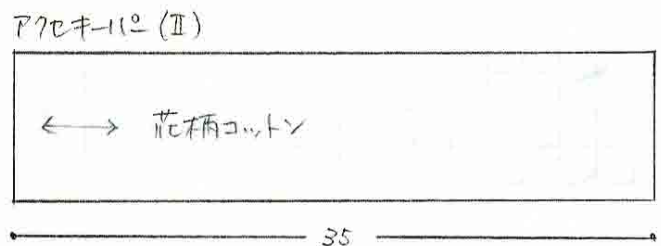 アクセキーパー(Ⅱ)
花柄コットン
35